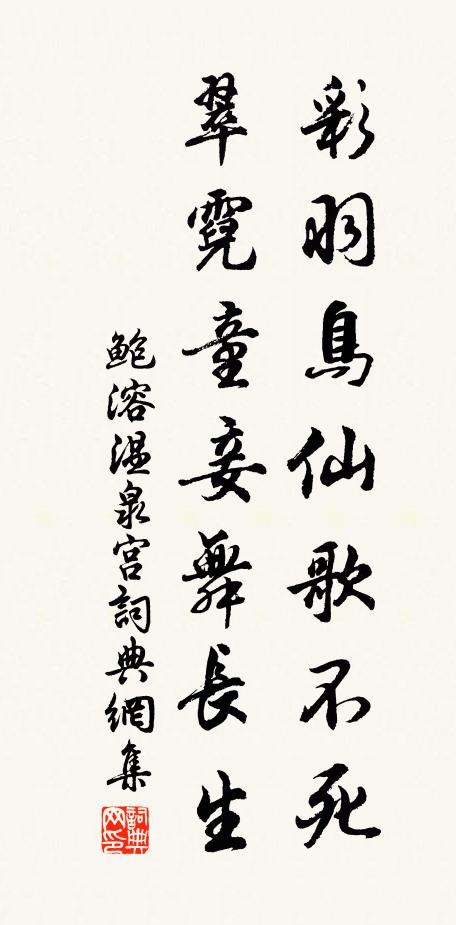 彩羽鳥仙歌不死
翠霓童妾舞長生
鮑溶溫泉宮詞典網集
詞典網印